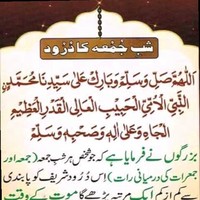 شبِ جُمعہ کا دُرُود
اَللّٰهُمَّ صَلِّ وَسَلِّمْ وَبَارِكْ عَلٰی سَیِّدِنَا مُحَمَّدِنِ
النَّبِیِّ الْاُمِّیِّ الْحَبِیْبِ الْعَالِی الْقَدْرِ الْعَظِیْمِ
الْجَاهِ وَعَلٰی اٰلِهٖ وَصَحْبِهٖ وَسَلِّمْ
بزرگوں نے فرمایا ہے کہ جو شخص ہر شبِ جمعہ (جمعہ اور
جمعرات کی درمیانی رات) اس دُرُود شریف کو پابندی
سے کم از کم ایک مرتبہ پڑھے گا موت کے وقت